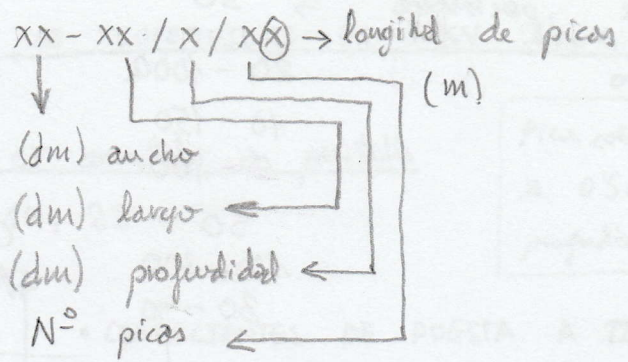 xx - xx / x / xx → longitud de picas
(m)
(dm) ancho
(dm) largo
(dm) profundidad
Nº picas